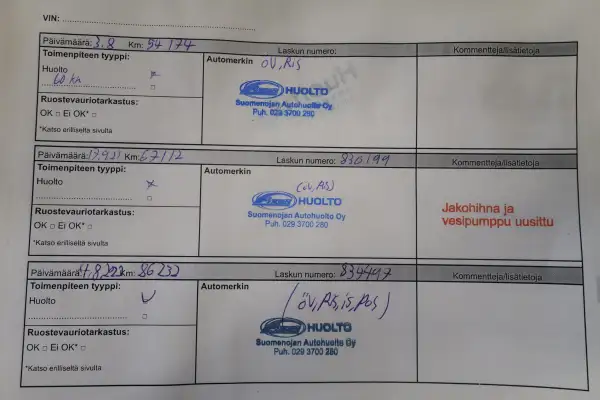 VIN:
Päivämäärä: 3.8 Km: 54 174 Laskun numero: Kommentteja/lisätietoja
Toimenpiteen tyyppi: Automerkin öv, Ris
Huolto
60 kkn
HUOLTO
Suomenojan Autohuolto Oy
Puh. 029 3700 280
Ruostevauriotarkastus:
OK □ Ei OK* □
*Katso erilliseltä sivulta
Päivämäärä: 17.9.21 Km: 67112 Laskun numero: 830199 Kommentteja/lisätietoja
Toimenpiteen tyyppi: Automerkin
Huolto x
HUOLTO
Suomenojan Autohuolto Oy
Puh. 029 3700 280
Jakohihna ja
vesipumppu uusittu
Ruostevauriotarkastus:
OK □ Ei OK* □
*Katso erilliseltä sivulta
Päivämäärä: 4.8.2022 Km: 86232 Laskun numero: 834447 Kommentteja/lisätietoja
Toimenpiteen tyyppi: Automerkin
Huolto
HUOLTO
Suomenojan Autohuolto Oy
Puh. 029 3700 280
Ruostevauriotarkastus:
OK □ Ei OK* □
*Katso erilliseltä sivulta